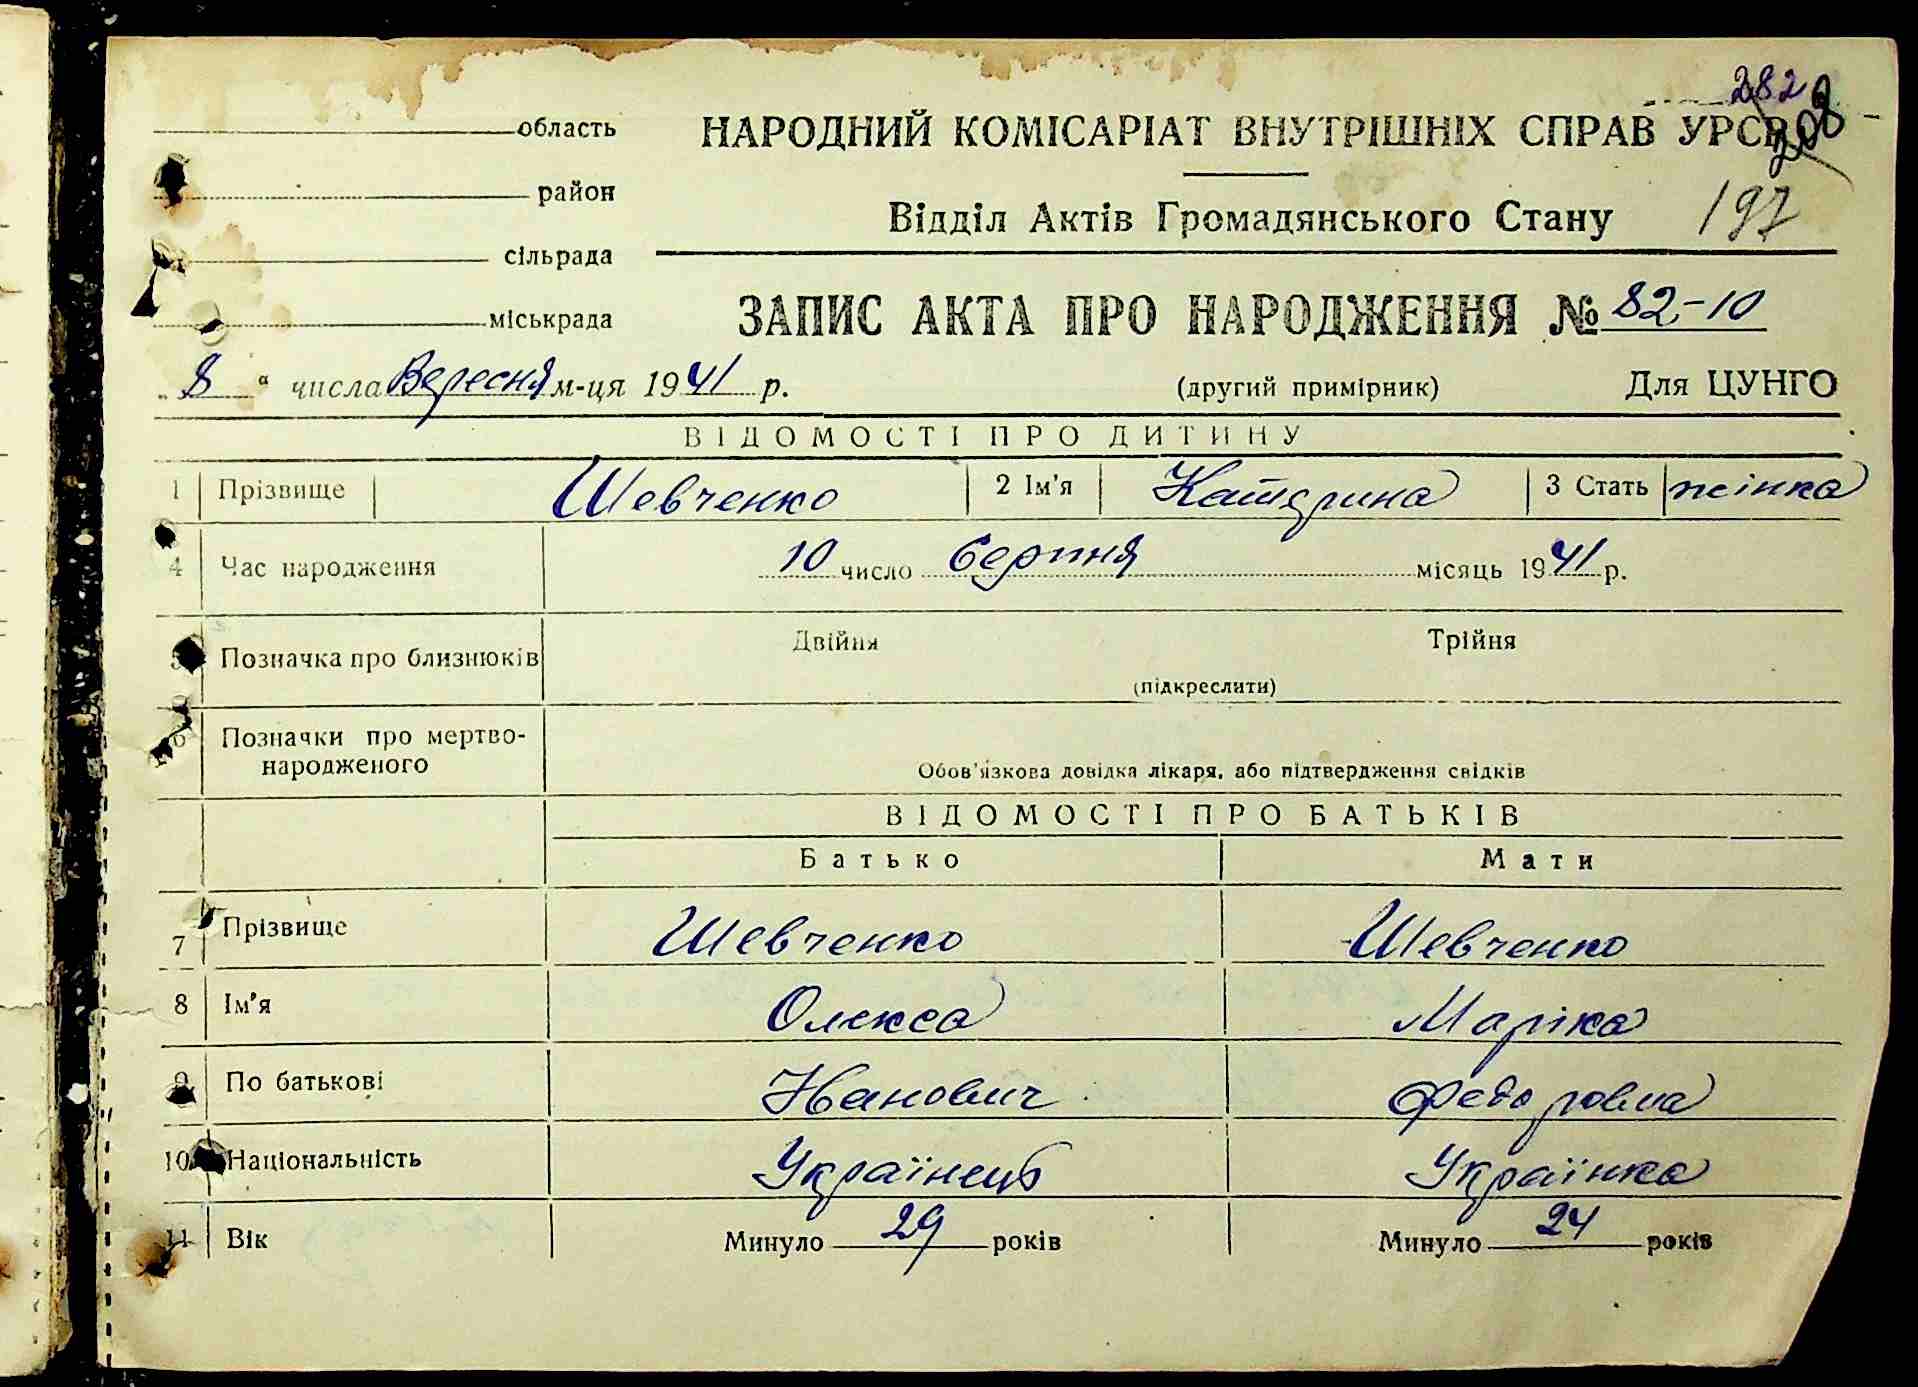 282
208
область
НАРОДНИЙ КОМІСАРІАТ ВНУТРІШНІХ СПРАВ УРСР
район
Відділ Актів Громадянського Стану 197
сільрада
міськрада
ЗАПИС АКТА ПРО НАРОДЖЕННЯ № 82-10
„ 8 “ числа Вересня м-ця 1941 р. (другий примірник) Для ЦУНГО
ВІДОМОСТІ ПРО ДИТИНУ
1 Прізвище Шевченко 2 Ім'я Катерина 3 Стать жінка
4 Час народження 10 число Серпня місяць 1941 р.
5 Позначка про близнюків Двійня Трійня
(підкреслити)
6 Позначки про мертво-
народженого
Обов'язкова довідка лікаря, або підтвердження свідків
ВІДОМОСТІ ПРО БАТЬКІВ
Батько Мати
7 Прізвище Шевченко Шевченко
8 Ім'я Олекса Маріка
9 По батькові Иванович Федоровна
10 Національність Українець Українка
11 Вік Минуло 29 років Минуло 24 років